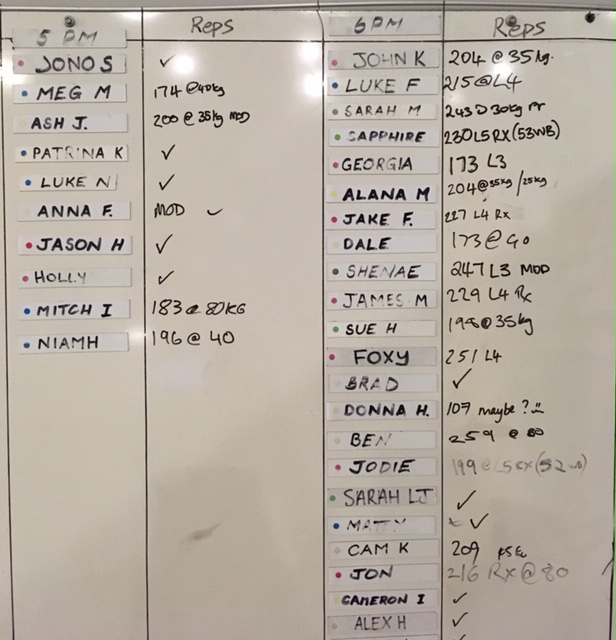 5 PM Reps
JONO S ✓
MEG M 174 @40kg
ASH J. 200 @ 35kg MOD
PATRINA K ✓
LUKE N ✓
ANNA F. MOD ✓
JASON H ✓
HOLLY ✓
MITCH I 183 @ 80KG
NIAMH 196 @ 40
6PM Reps
JOHN K 204 @ 35kg.
LUKE F 215@L4
SARAH M 243 @ 30kg
SAPPHIRE 230 L5 RX (53WB)
GEORGIA 173 L3
ALANA M 204@35kg/25kg
JAKE F. 227 L4 Rx
DALE 173@40
SHENAE 247 L3 MOD
JAMES M 229 L4 Rx
SUE H @35kg
FOXY 251 L4
BRAD ✓
DONNA H. 107 maybe?
BEN 259 @ 80
JODIE 199 @ L5 RX (52WB)
SARAH LJ ✓
MATTY ✓
CAM K 209
JON 216 RX@80
CAMERON I ✓
ALEX H ✓